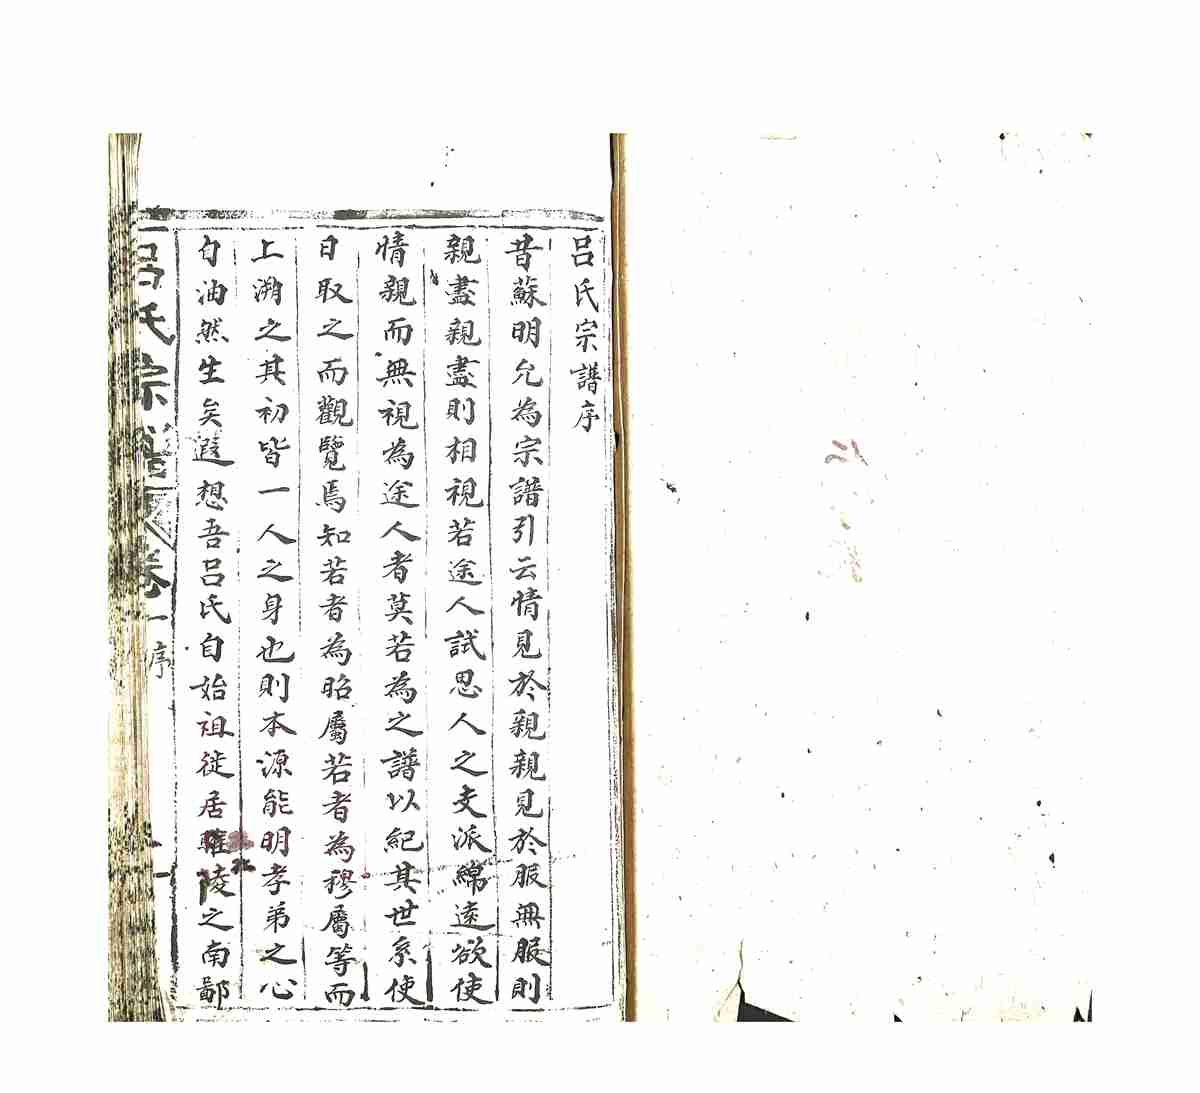 呂氏宗譜序
昔蘇明允為宗譜引云情見於親親見於服無服則
親盡親盡則相視若途人試思人之支派綿遠欲使
情親而無視為途人者莫若為之譜以紀其世系使
日取之而觀覽焉知若者為昭屬若者為穆屬等而
上溯之其初皆一人之身也則本源能明孝弟之心
自油然生矣遐想吾呂氏自始祖徙居陵之南鄙
呂氏宗譜 卷一 序